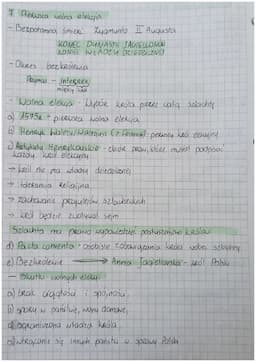 7. Pierwsza wolna elekcja
- Bezpotomna śmierć Zygmunta II Augusta
KONIEC DYNASTII JAGIELLONÓW
KONIEC WŁADZY DZIEDZICZNEJ
- Okres bezkrólewia
Pojmuj - interrex
między król
- Wolna elekcja - wybór króla przez całą szlachtę
a) 1573r pierwsza wolna elekcja
b) Henryk Walezy/Walezjusz (z Francji) - pierwszy król elekcyjny
c) Artykuły Henrykowskie - zbiór praw, które musiał podpisać
każdy król elekcyjny
→ król nie ma władzy dziedzicznej
→ tolerancja religijna
→ zachowanie przywilejów szlacheckich
→ król będzie zwoływał sejm
Szlachta ma prawo wypowiedzieć posłuszeństwo królowi
d) Pacta conventa - osobiste zobowiązania króla wobec szlachty
e) Bezkrólewie → Anna Jagiellonka - król Polski
- Skutki wolnych elekcji
a) brak ciągłości i spójności,
b) spory w państwie, wojny domowe,
c) ograniczona władza króla,
d) wtrącanie się innych państw w sprawy Polski